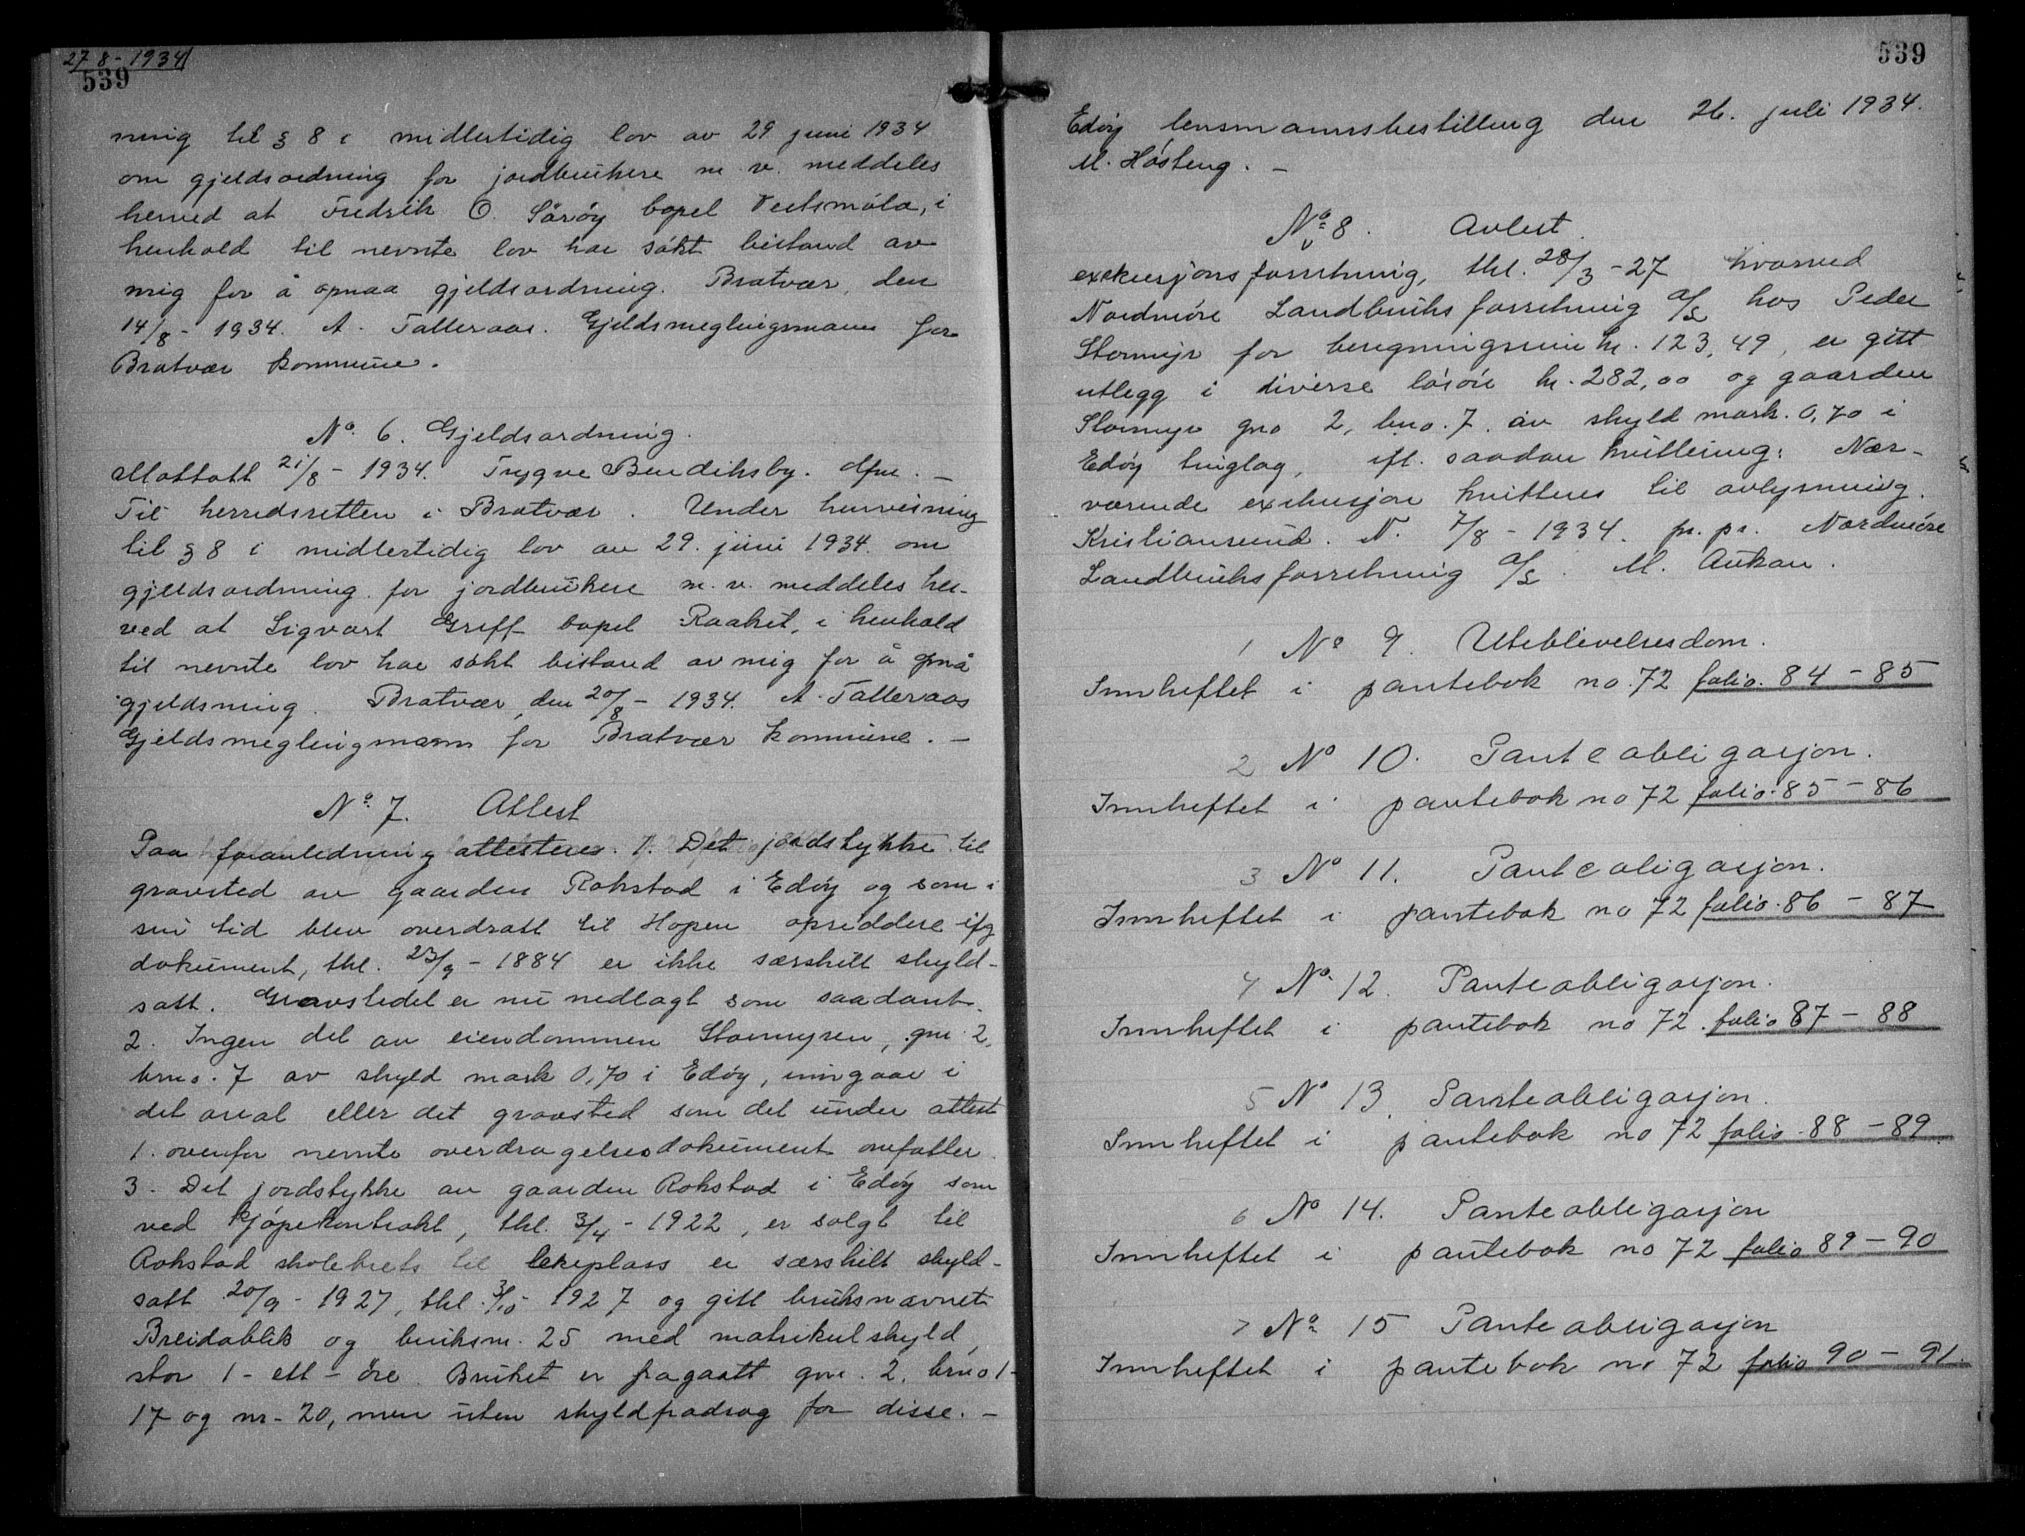 27 8 - 1934
539
ning til § 8 i midlertidig lov av 29 juni 1934
om gjeldsordning for jordbrukere m. v. meddeles
herved at Fredrik O. Sørøy bopel Veitsmåla, i
henhold til nevnte lov har søkt bistand av
mig for å opnaa gjeldsordning. Bratvær, den
14/8 - 1934. A. Talleraas. Gjeldsmeglingsmann for
Bratvær kommune.
No. 6. Gjeldsordning.
Mottatt 21/8 - 1934. Trygve Bendiksby. dfm. -
Til herredsretten i Bratvær. Under henvisning
til § 8 i midlertidig lov av 29. juni 1934 om
gjeldsordning for jordbrukere m. v. meddeles her-
ved at Sigvart Greff bopel Raaket, i henhold
til nevnte lov har søkt bistand av mig for å opnå
gjeldsning. Bratvær, den 20/8 - 1934. A. Talleraas
Gjeldsmeglingmann for Bratvær kommune. -
No. 7. Attest
Paa foranledning attesteres. 1. Det jordstykke til
gravsted av gaarden Rokstad i Edøy og som i
sin tid blev overdratt til Hopen opsiddere ifg
dokument, thl. 23/9 - 1884 er ikke særskilt skyld-
satt. Gravstedet er nu nedlagt som saadant.
2. Ingen del av eiendommen Stormyren, gnr 2,
brno. 7 av skyld mark 0,70 i Edøy, inngaar i
det areal eller det gravsted som det under attest
1. ovenfor nevnte overdragelsesdokument omfatter.
3. Det jordstykke av gaarden Rokstad i Edøy som
ved kjøpekontrakt, thl. 3/4 - 1922, er solgt til
Rokstad skolekrets til lekeplass er særskilt skyld-
satt 20/9 - 1927, thl. 3/10 1927 og gitt bruksnavnet
Breidablik og bruksnr. 25 med matrikulskyld
stor 1 - ett - øre. Bruket er fragaatt gnr. 2. brno 1 -
17 og nr - 20, men uten skyldfradrag for disse. -
539
Edøy lensmannsbestilling den 26. juli 1934.
M. Høsteng. -
No. 8. Avlest.
exekusjonsforretning, thl. 28/3 - 27 hvorved
Nordmøre Landbruksforretning A/S hos Peder
Stormyr for beregningsvis kr. 123,49, er gitt
utlegg i diverse løsøre kr. 282,00 og gaarden
Stormyr gno 2, bno. 7 av skyld mark. 0,70 i
Edøy tinglag, ifl. saadan kvittering: Nær-
værende exekusjon kvitteres til avlysning.
Kristiansund. N. 7/8 - 1934. pr. pr. Nordmøre
Landbruksforretning A/S. M. Aukan.
1 No 9. Uteblivelsesdom.
Innheftet i pantebok no. 72 folio. 84 - 85
2 No 10. Panteobligasjon.
Innheftet i pantebok no 72 folio. 85 - 86
3 No 11. Panteobligasjon.
Innheftet i pantebok no 72 folio. 86 - 87
4 No 12. Panteobligasjon.
Innheftet i pantebok no 72. folio 87 - 88
5 No 13. Panteobligasjon.
Innheftet i pantebok no 72 folio. 88 - 89.
6 No 14. Panteobligasjon
Innheftet i pantebok no 72 folio 89 - 90
7 No 15 Panteobligasjon
Innheftet i pantebok no 72 folio 90 - 91.